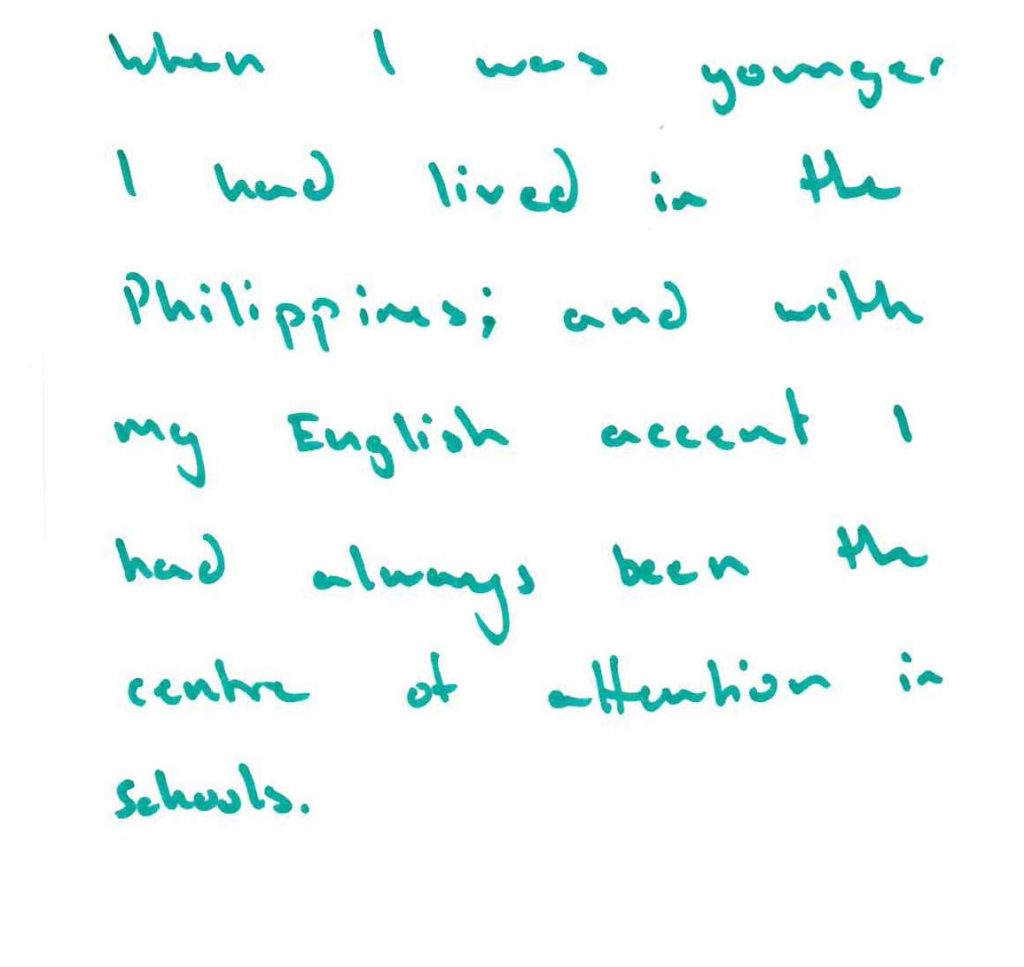 When I was younger
I had lived in the
Philippines; and with
my English accent I
had always been the
centre of attention in
schools.